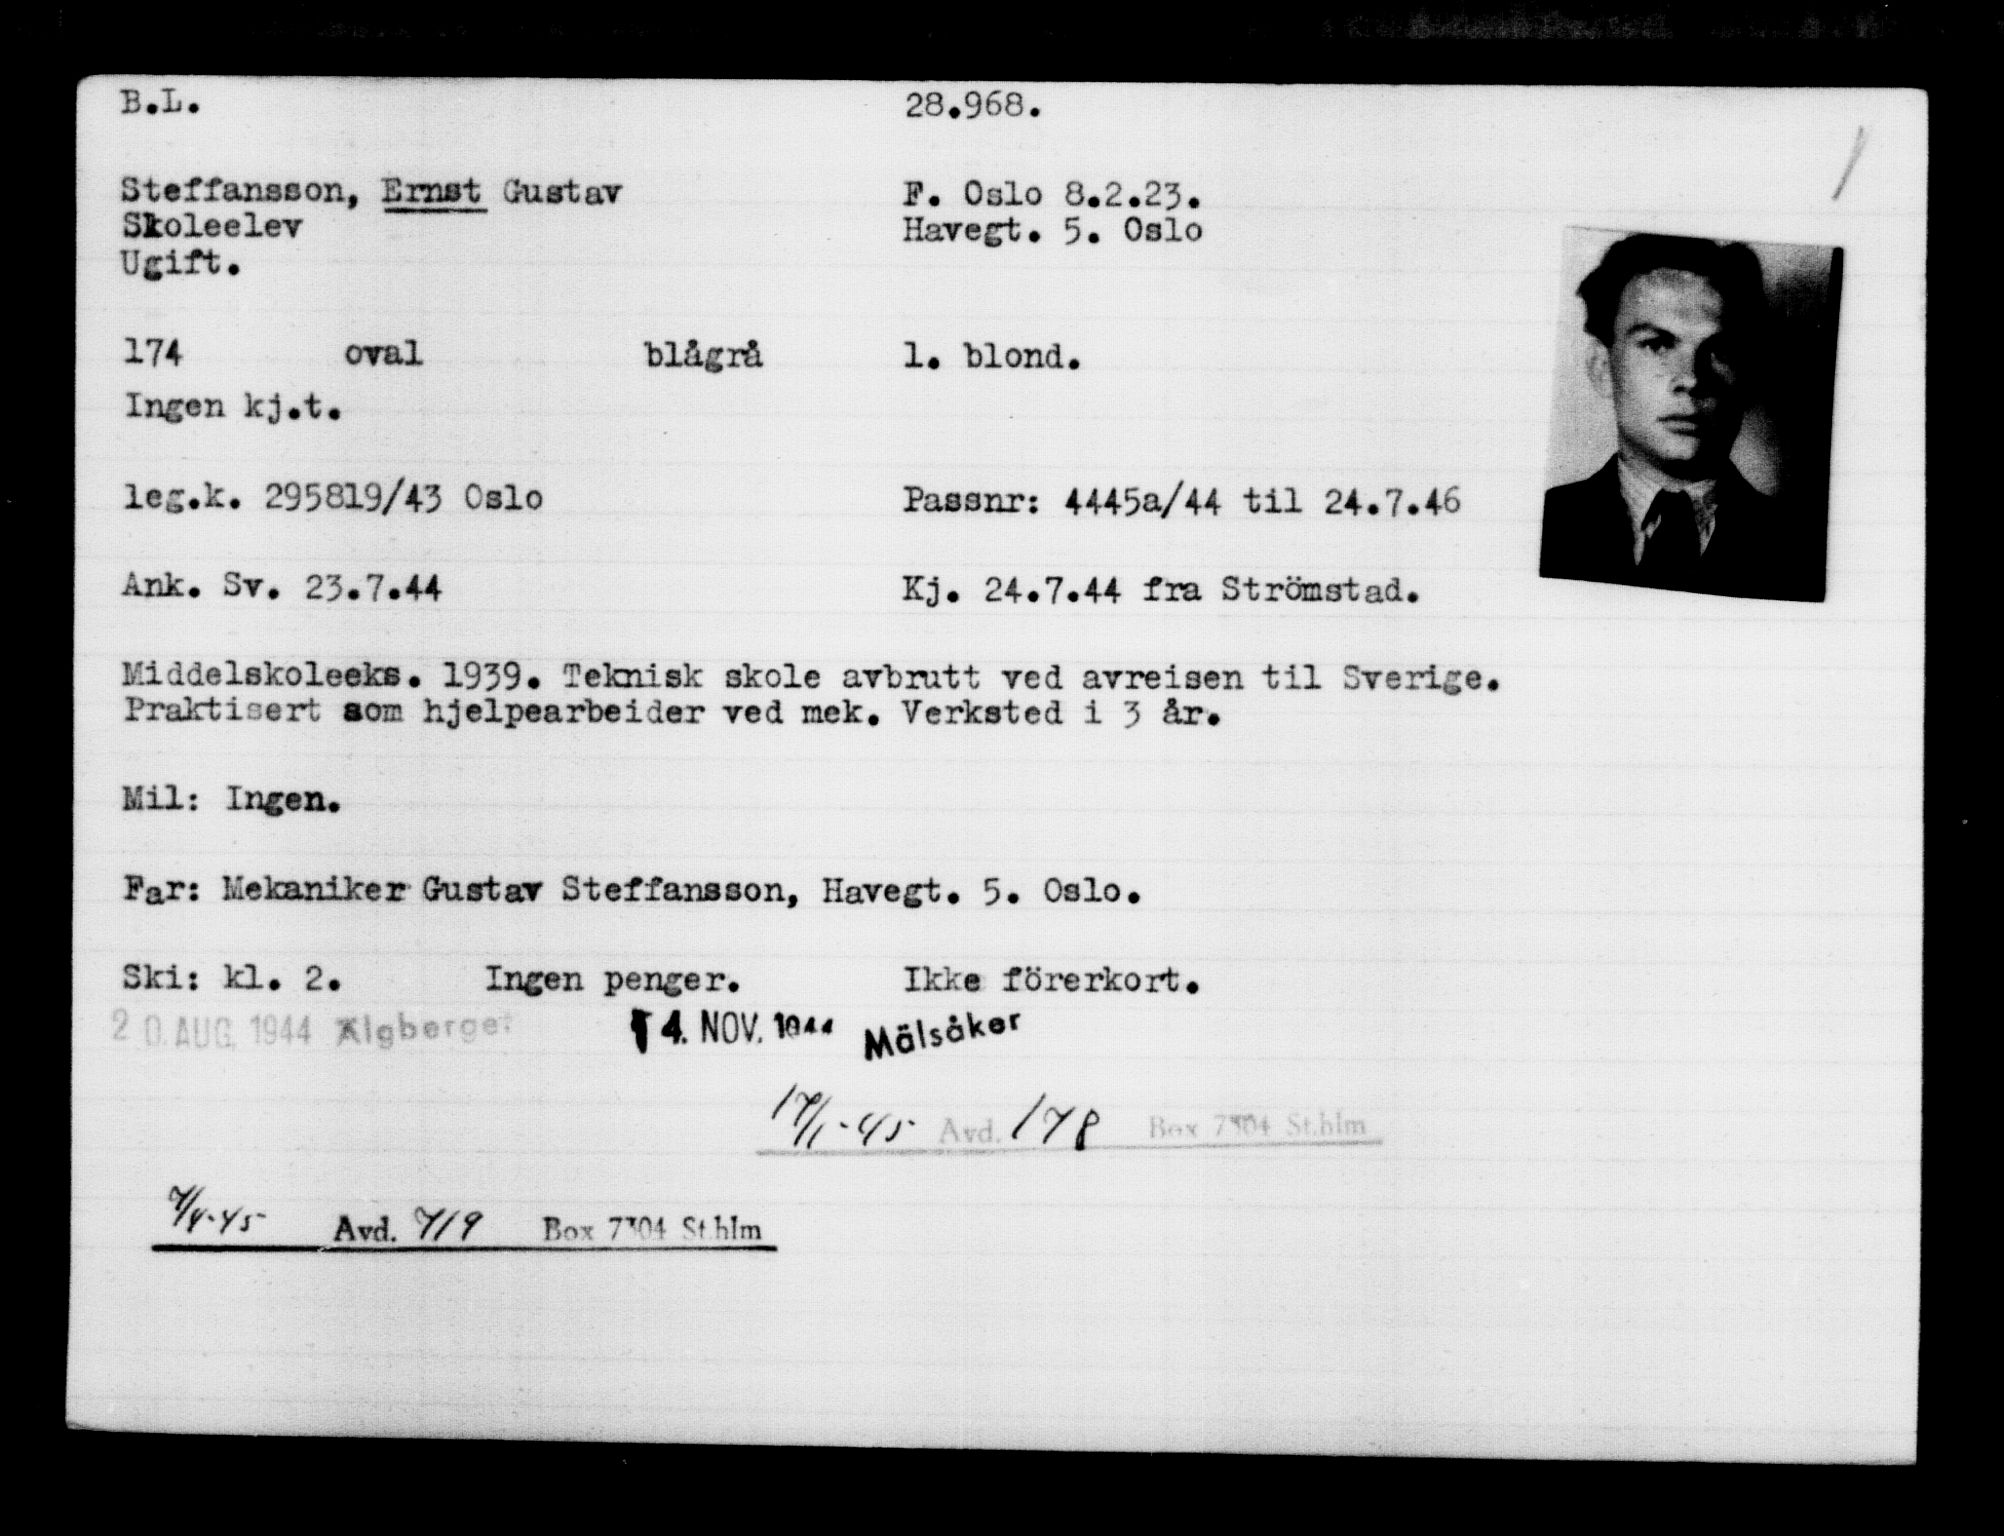 B.L. 28.968.
Steffansson, Ernst Gustav F. Oslo 8.2.23.
Skoleelev Havegt. 5. Oslo
Ugift.
174 oval blågrå l. blond.
Ingen kj.t.
leg.k. 295819/43 Oslo Passnr: 4445a/44 til 24.7.46
Ank. Sv. 23.7.44 Kj. 24.7.44 fra Strömstad.
Middelskoleeks. 1939. Teknisk skole avbrutt ved avreisen til Sverige.
Praktisert som hjelpearbeider ved mek. Verksted i 3 år.
Mil: Ingen.
Far: Mekaniker Gustav Steffansson, Havegt. 5. Oslo.
Ski: kl. 2. Ingen penger. Ikke förerkort.
20. AUG. 1944 Älgberget 14. NOV. 1944 Mälsåker
17/1-45 Avd. 178 Box 7304 St.hlm
7/4-45 Avd. 719 Box 7304 St.hlm